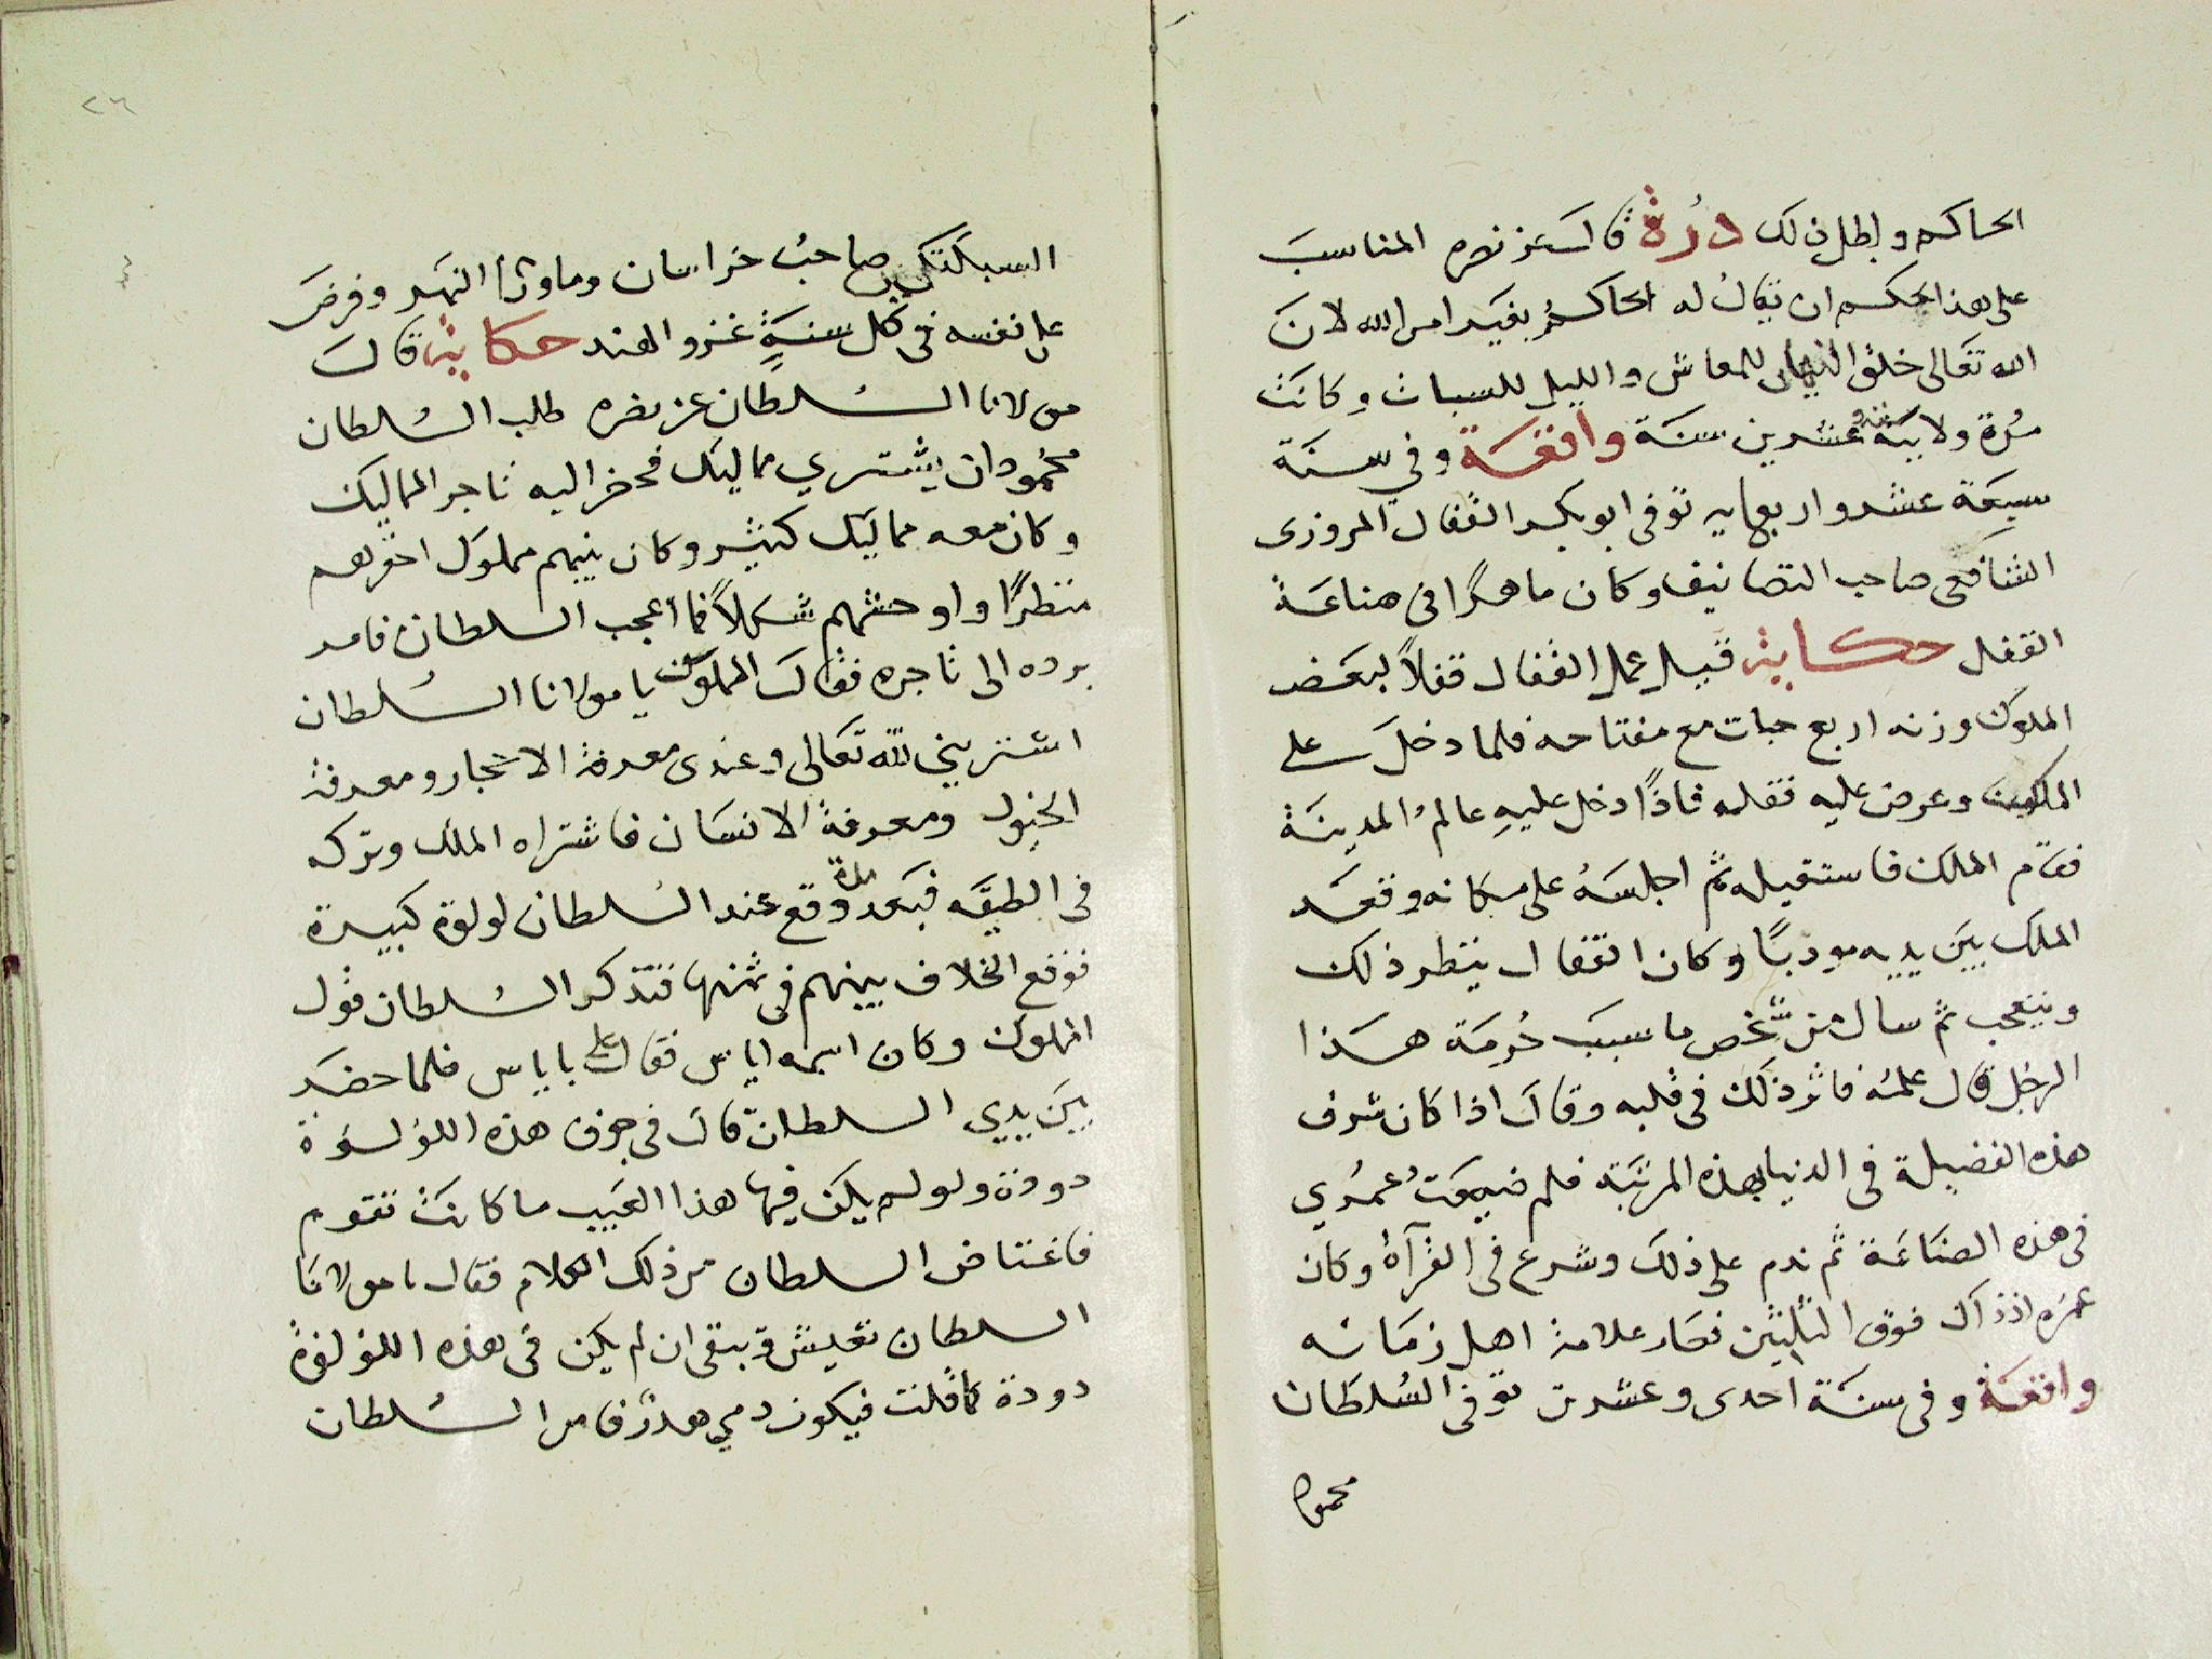 الحاكم وابطل ذلك درة قال عز نصره المناسب
على هذا الحكم ان يقال له الحاكم بغير امر الله لان
الله تعالى خلق النهار للمعاش والليل للسبات وكانت
مدة ولايته عشرين سنة واقعة وفي سنة
سبعة عشر واربعمايه توفى ابو بكر القفال المروزى
الشافعى صاحب التصانيف وكان ماهرًا فى صناعة
القفل حكاية قيل عمل القفال قفلاً لبعض
الملوك وزنه اربع حبات مع مفتاحه فلما دخل على
الملك وعرض عليه قفله فاذًا دخل عليهِ عالمُ المدينة
فقام الملك فاستقبله ثم اجلسهُ على مكانه وقعد
الملك بين يديه مودبًا وكان القفال ينظر ذلك
ويتعجب ثم سال من شخص ما سبب حُرمة هذا
الرجل قال علمهُ فاثر ذلك فى قلبه وقال اذا كان شرف
هذه الفضيلة فى الدنيا بهذه المرتبة فلم ضيعتُ عمُري
فى هذه الصناعة ثم ندم على ذلك وشرع فى القرآة وكان
عمره اذ ذاك فوق الثلثين فصار علامة اهل زمانه
واقعة وفى سنة احدى وعشرين توفى السُلطان
محمود
٢٦
السبكتكين صاحبُ خراسان وماورآ النهر وفرض
على نفسه فى كل سنةٍ غزو الهند حكاية قال
مولانا السُلطان عز نصره طلب السُلطان
محمُود ان يشتري مماليك فحضر اليه تاجر المماليك
وكان معه مماليك كثير وكان بينهم مملوك احقرهم
منظرًا واوحشهم شكلاً فما اعجب السلطان فامر
برده الى تاجره فقال المملوك يا مولانا السُلطان
اشتريني لله تعالى وعندى معرفة الاحجار ومعرفة
الخيول ومعرفة الانسان فاشتراه الملك وتركه
فى الطبقه فبعد مدة وقع عند السُلطان لولوة كبيرة
فوقع الخلاف بينهم فى ثمنها فتذكر السُلطان قول
المملوك وكان اسمه اياس فقال على باياس فلما حضر
بين يدي السلطان قال فى جوف هذه اللؤلؤة
دودة ولو لم يكن فيها هذا العيب ما كانت تقوم
فاغتاض السلطان من ذلك الكلام فقال يا مولانا
السلطان تعيش وتبقى ان لم يكن فى هذه اللؤلؤة
دودة كما قلت فيكون دمي هدرًا فامر السُلطان